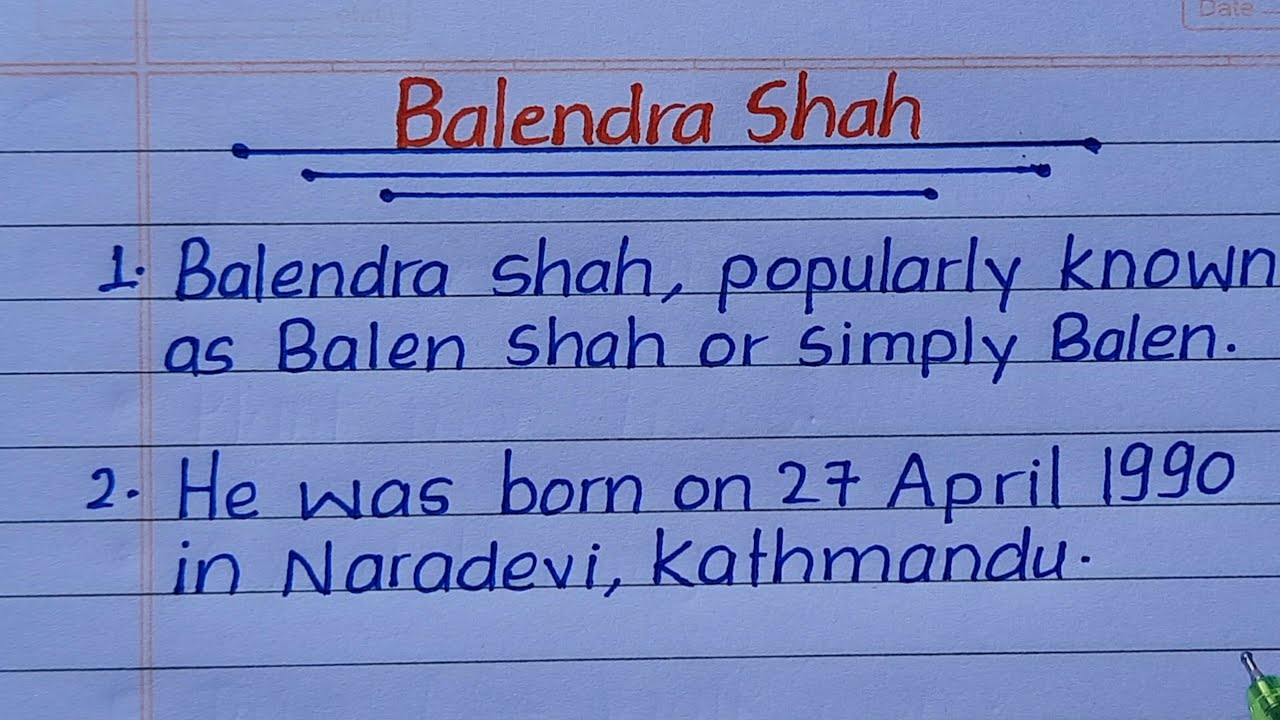 Date
Balendra Shah
1. Balendra shah, popularly known
as Balen shah or simply Balen.
2. He was born on 27 April 1990
in Naradevi, Kathmandu.